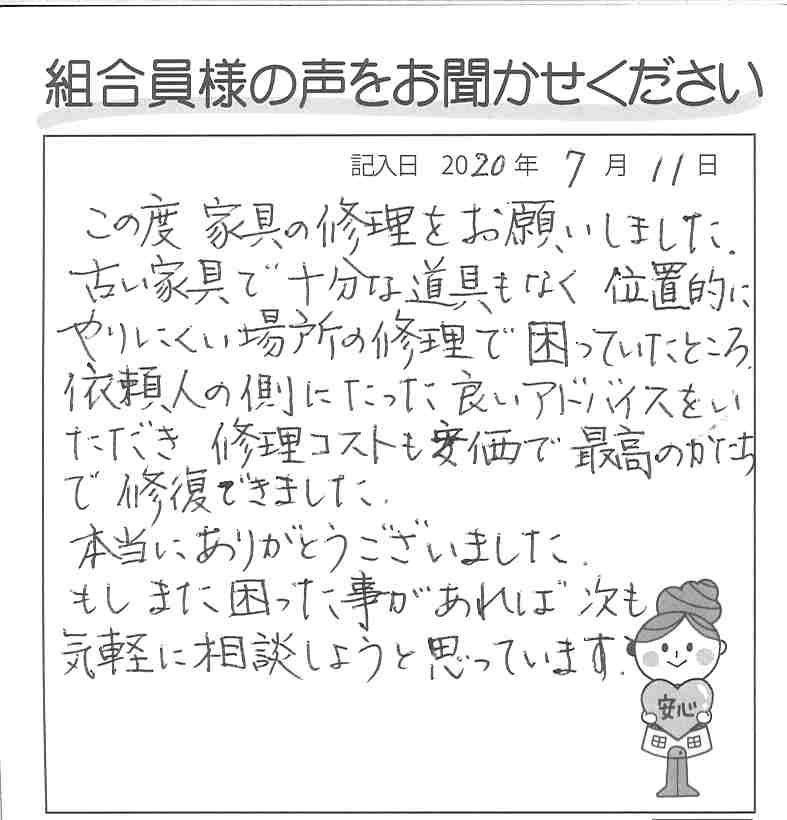 組合員様の声をお聞かせください
記入日 2020年 7月 11日
この度 家具の修理をお願いしました。
古い家具で十分な道具もなく 位置的に
やりにくい場所の修理で困っていたところ、
依頼人の側にたった良いアドバイスをい
ただき 修理コストも安価で最高のかたち
で修復できました。
本当にありがとうございました。
もしまた困った事があれば 次も
気軽に相談しようと思っています。
安心